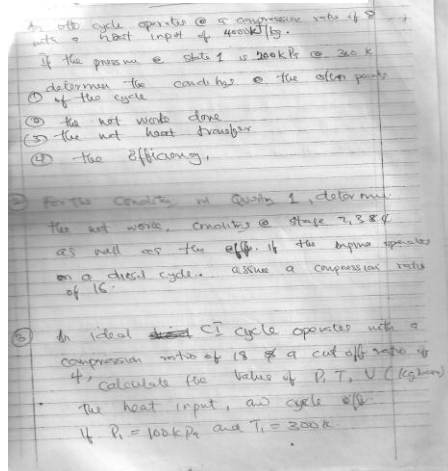 An otto cycle operates @ a compression ratio of 8
with a heat input of 4000kJ/kg.
If the pressure @ state 1 is 200kPa @ 300 k
determine the conditions @ the other points
① of the cycle
② the net work done
③ the net heat transfer
④ the efficiency,
② For the Condition in Question 1, determine
the net work, conditions @ stage 2,3 & 4
as well as the eff. if the engine operates
on a diesel cycle. assume a compression ratio
of 16.
③ An ideal CI cycle operates with a
compression ratio of 18 & a cut off ratio of
4, calculate the value of P, T, V
The heat input, and cycle eff.
If P₁ = 100kPa and T₁ = 300k.